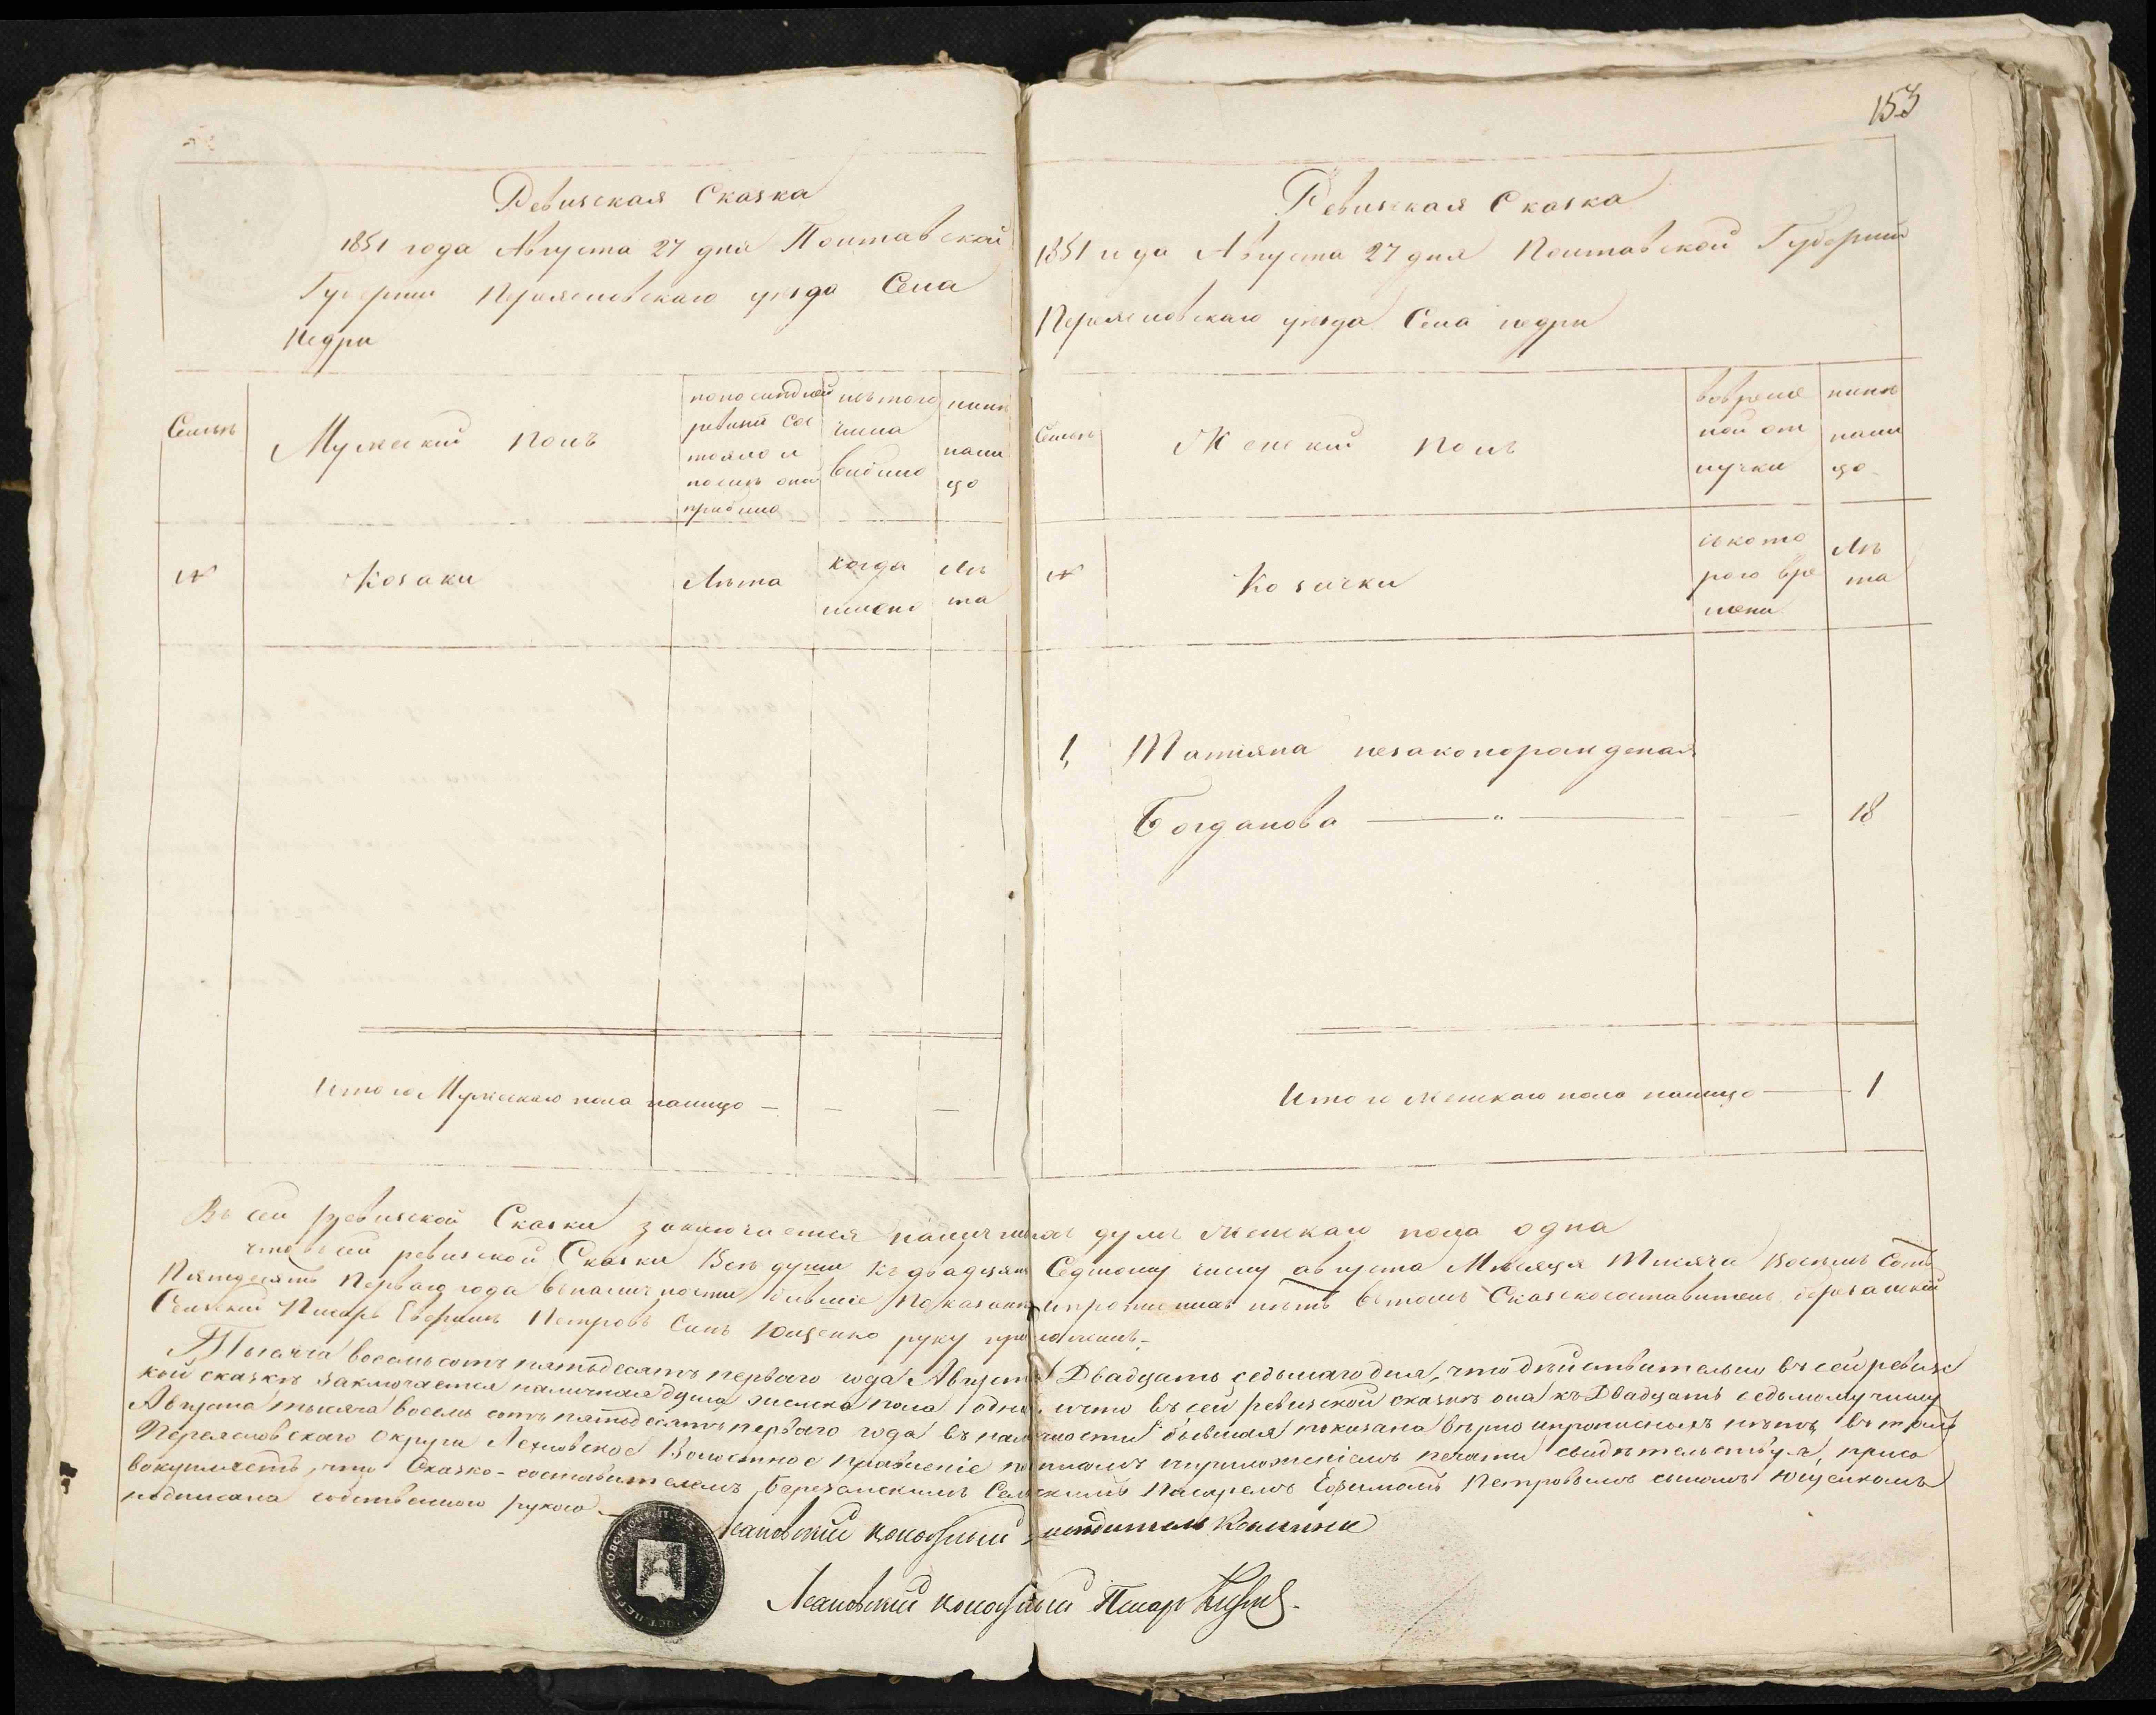 153
Ревизская Сказка
1851 года Августа 27 дня Полтавской
Губернии Переясловскаго уезда Села
Недри
Семьи
Мужеский полъ
по последней
ревизіи сос
тояло и
после оной
прибыло
изъ того
числа
выбыло
ныне
нали
цо
№
Козаки
Лѣта
когда
имено
Лѣ
та
Итого Мужескаго пола налицо — — —
Ревизская Сказка
1851 года Августа 27 дня Полтавской Губерніи
Переясловскаго уезда Села Недри
Семьи
Женский полъ
вовремѣ
ной от
лучки
ныне
нали
цо
№
Козачки
ískото
рого вре
мени
Лѣ
та
1, Матіяна незаконорожденая
Богданова — " — — — 18
Итого женскаго пола налицо — 1
Въ сей ревизской Сказки заключается наличныхъ душъ женскаго пола одна
что въ сей ревизской Сказки Всѣ души къ двадцать Седмому числу августа Мѣсяца Тисяча Восемъ Сотъ
Пятдесятъ Перваго года вналичности бывшіе показаны и прописныхъ нѣтъ втомъ Сказкосоставитель березанский
Селский Писарь Ефримъ Петровъ Синъ Ющенко руку приложилъ.
Тысяча восемьсотъ пятьдесятъ перваго года Августа Двадцать седьмаго дня, что дѣйствительно въ сей ревизс
кой сказкѣ заключается наличная душа женска пола одна, и что въ сей ревизской сказкѣ она къ Двадцать седьмому числу
Августа тысяча восемь сотъ пятьдесятъ перваго года въ наличности бывшая показана вѣрно и прописныхъ нѣтъ, въ томъ
Переясловскаго Округа Лехновское Волостное правленіе подписомъ и приложеніемъ печати свидѣтельствуя, присо
вокупляетъ, что Сказко-составителемъ Березанскимъ Сельскимъ Писаремъ Ефимомъ Петровымъ сыномъ Ющенкомъ
подписана собственною рукою.
Писар